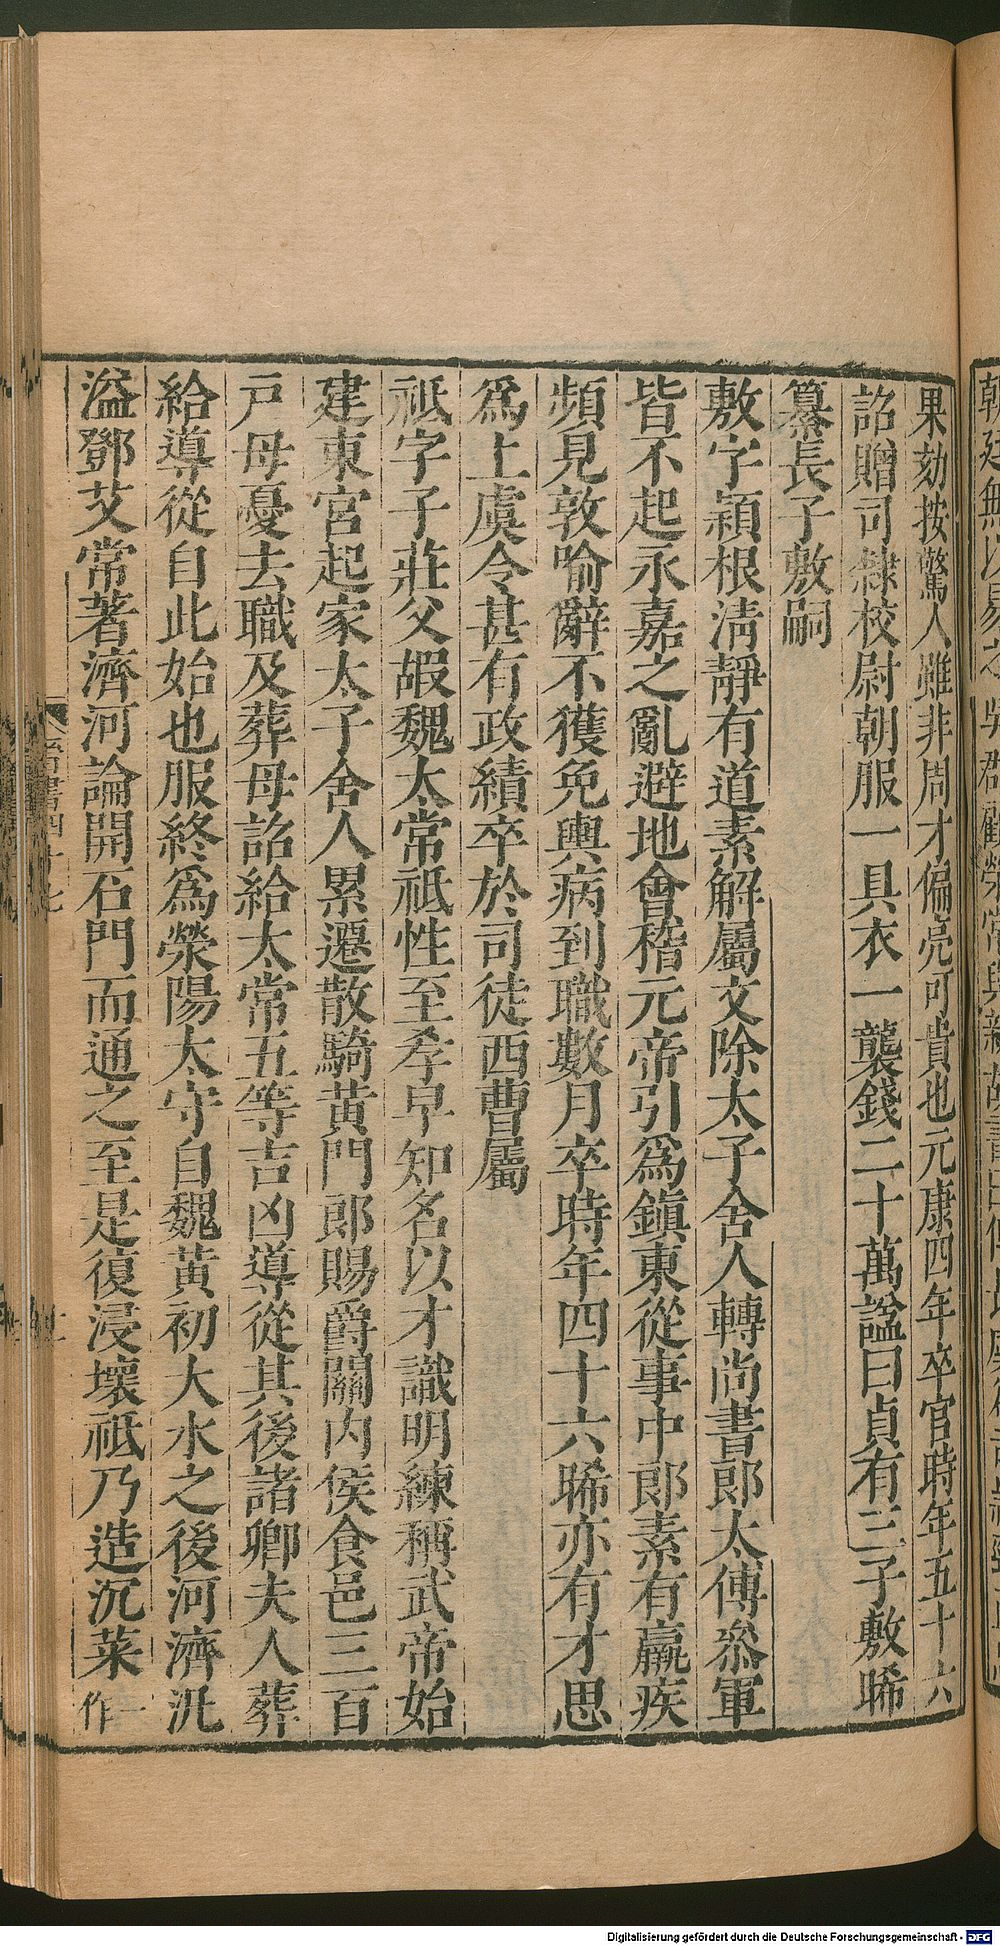 果劾按驚人雖非周才偏亮可貴也元康四年卒官時年五十六
詔贈司隸校尉朝服一具衣一襲錢二十萬謚曰貞有三子敷晞
纂長子敷嗣
敷字穎根清靜有道素解屬文除太子舍人轉尚書郎太傅叅軍
皆不起永嘉之亂避地會稽元帝引為鎮東從事中郎素有羸疾
頻見敦喻辭不獲免輿病到職數月卒時年四十六晞亦有才思
為上虞令甚有政績卒於司徒西曹屬
祗字子莊父嘏魏太常祗性至孝早知名以才識明練稱武帝始
建東宮起家太子舍人累遷散騎黃門郎賜爵關内侯食邑三百
戸母憂去職及葬母詔給太常五等吉凶導從其後諸卿夫人葬
給導從自此始也服終為滎陽太守自魏黃初大水之後河濟汎
溢鄧艾常著濟河論開石門而通之至是復浸壞祗乃造沉萊一作
晉書四十七
Digitalisierung gefördert durch die Deutsche Forschungsgemeinschaft - DFG